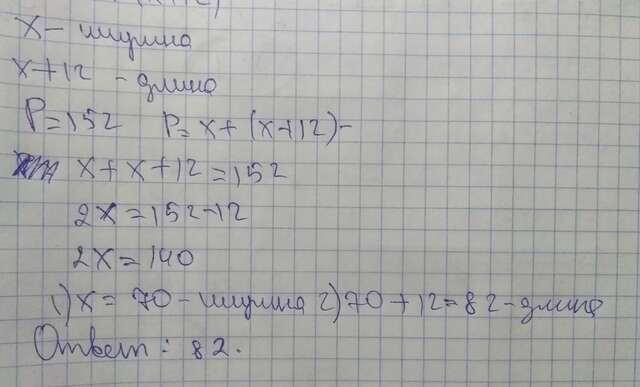 х - ширина
х+12 - длина
P=152 P=х+(х+12)-
х+х+12=152
2х=152-12
2х=140
1) х=70-ширина 2) 70+12=82-длина
Ответ: 82.